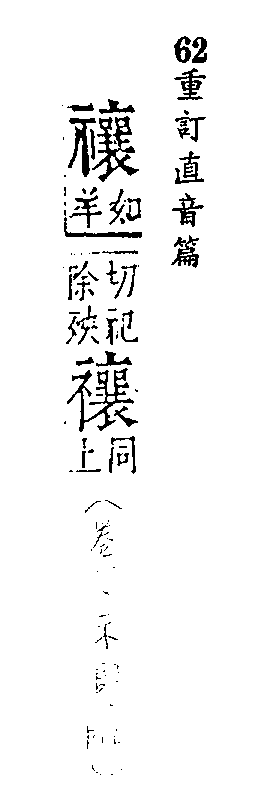 62重訂直音篇
禳如羊切祀除殃禳同上(卷